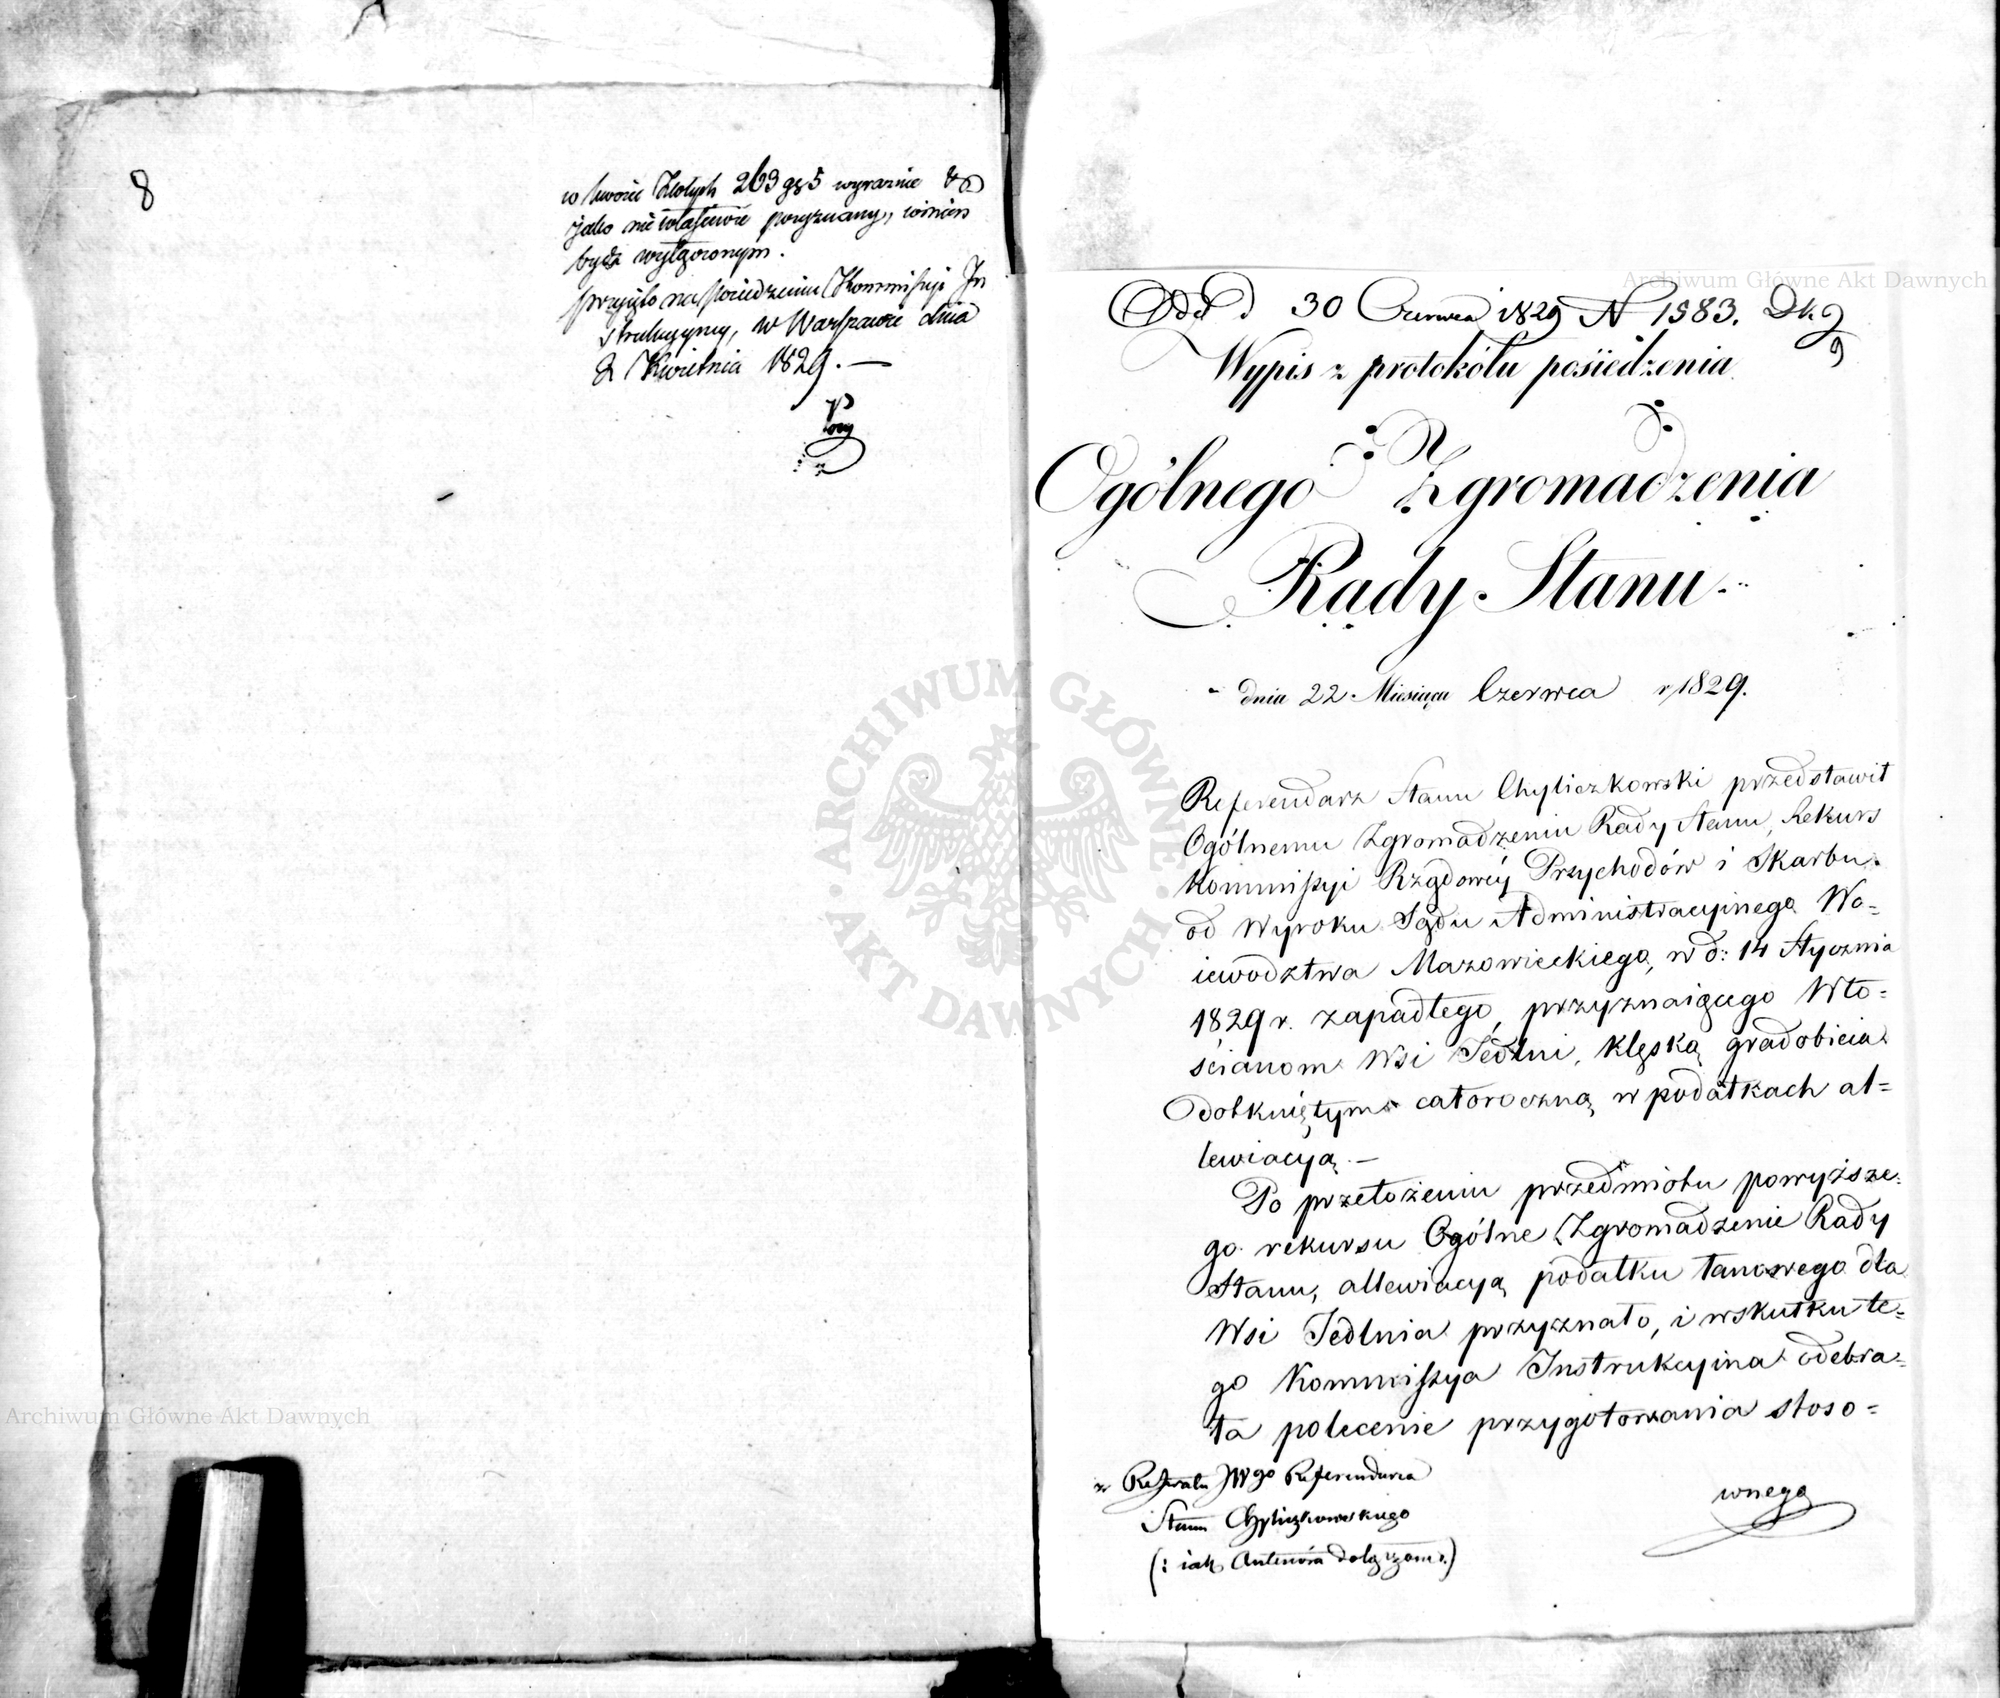 8
w kwocie Złotych 263 gr 5 wyraznie
jako nie właściwie przyznany, winien
bydź wyłączonym.
przyięto na posiedzeniu Kommissyi In
strukcyiney, w Warszawie dnia
2 Kwietnia 1829. —
Odd d 30 Czerwca 1829 N 1583.
9
Wypis z protokółu posiedzenia
Ogólnego Zgromadzenia
Rady Stanu
dnia 22 Miesiąca Czerwca r 1829.
Referendarz Stanu Chyliczkowski przedstawił
Ogólnemu Zgromadzeniu Rady Stanu, Rekurs
Kommissyi Rządowéy Przychodów i Skarbu
od Wyroku Sądu Administracyinego Wo=
iewództwa Mazowieckiego, w d: 14 Stycznia
1829 r. zapadłego, przyznaiącego Wło=
ścianom Wsi Jedlni, klęską gradobicia
dotkniętym całoroczną w podatkach al=
lewiacyą. —
Po przełożeniu przedmiotu powyższe=
go rekursu Ogólne Zgromadzenie Rady
Stanu, allewiacyą podatku łanowego dla
Wsi Jedlnia przyznało, i wskutku te=
go Kommissya Instrukcyina odebra=
ła polecenie przygotowania stoso=
wnego
z Referatu JWgo Referendarza
Stanu Chyliczkowskiego
(: iak Antenora dołączam :)
Archiwum Główne Akt Dawnych
Archiwum Główne Akt Dawnych
ARCHIWUM GŁÓWNE
AKT DAWNYCH